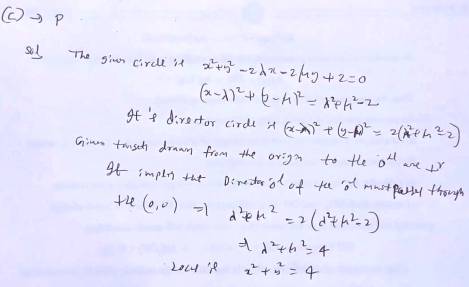 (C) → P
Sol The given circle is x²+y²-2λx-2μy+2=0
(x-λ)²+(y-μ)²=λ²+μ²-2
It's director circle is (x-λ)²+(y-μ)²=2(λ²+μ²-2)
Given tangents drawn from the origin to the are
It implies that Director of the must passes through
the (0,0) ⇒ λ²+μ²=2(λ²+μ²-2)
⇒ λ²+μ²=4
Locus is x²+y²=4